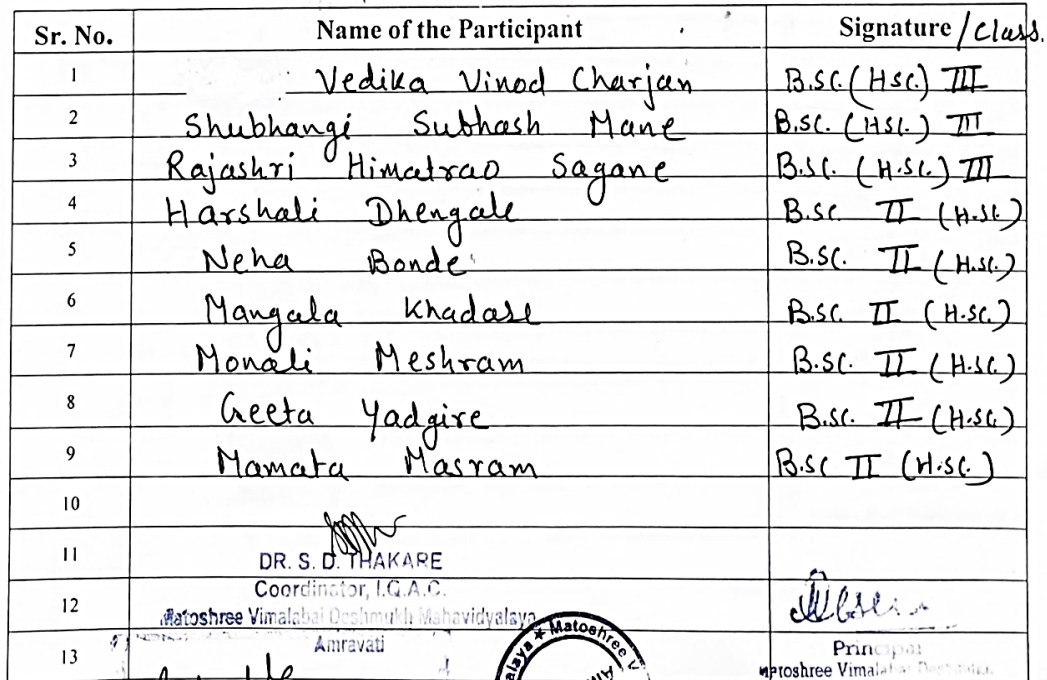 Sr. No. Name of the Participant Signature /Class.
1 Vedika Vinod Charjan B.SC. (HSC.) III
2 Shubhangi Subhash Mane B.SC. (HSC.) III
3 Rajashri Himatrao Sagane B.SC. (H.SC.) III
4 Harshali Dhengale B.SC. II (H.SC.)
5 Neha Bonde B.SC. II (H.SC.)
6 Mangala Khadase B.SC. II (H.SC.)
7 Monali Meshram B.SC. II (H.SC.)
8 Geeta Yadgire B.SC. II (H.SC.)
9 Mamata Masram B.SC II (H.SC.)
10
11 DR. S. D. THAKARE
Coordinator, I.Q.A.C.
12 Matoshree Vimalabai Deshmukh Mahavidyalaya
Amravati
13 Principal
Matoshree Vimalabai
alaya ★ Matoshree V